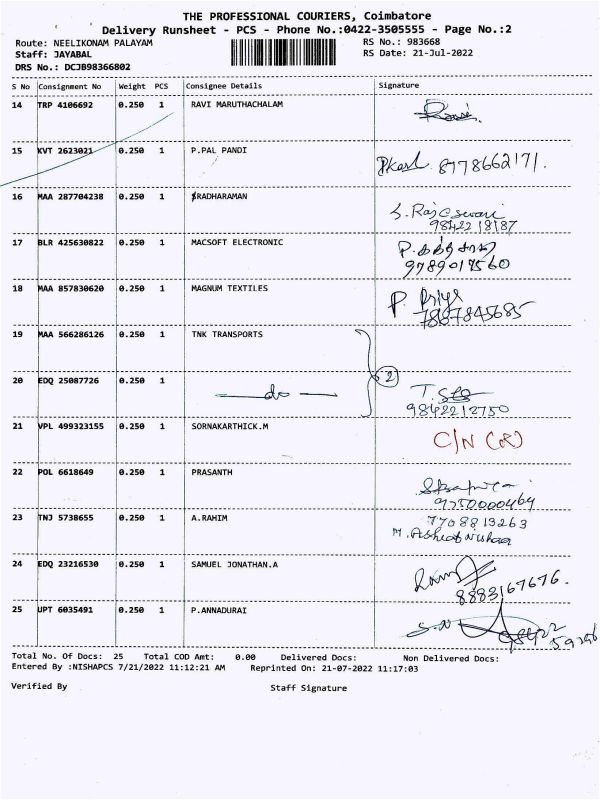 THE PROFESSIONAL COURIERS, Coimbatore
Delivery Runsheet - PCS - Phone No.:0422-3505555 - Page No.:2
Route: NEELIKONAM PALAYAM
RS No.: 983668
Staff: JAYABAL
RS Date: 21-Jul-2022
DRS No.: DCJB98366802
S No Consignment No Weight PCS Consignee Details Signature
14 TRP 4106692 0.250 1 RAVI MARUTHACHALAM
15 KVT 2623021 0.250 1 P.PAL PANDI
8778662171.
16 MAA 287704238 0.250 1 SRADHARAMAN
S. Rajeswari
9842218187
17 BLR 425630822 0.250 1 MACSOFT ELECTRONIC
9789017560
18 MAA 857830620 0.250 1 MAGNUM TEXTILES
P. Priya
7887845685
19 MAA 566286126 0.250 1 TNK TRANSPORTS
2
20 EDQ 25087726 0.250 1 — do —
9842212750
21 VPL 499323155 0.250 1 SORNAKARTHICK.M C/N (R)
22 POL 6618649 0.250 1 PRASANTH
9750000464
23 TNJ 5738655 0.250 1 A.RAHIM 7708813263
24 EDQ 23216530 0.250 1 SAMUEL JONATHAN.A
8883167676.
25 UPT 6035491 0.250 1 P.ANNADURAI
Total No. Of Docs: 25 Total COD Amt: 0.00 Delivered Docs: Non Delivered Docs:
Entered By :NISHAPCS 7/21/2022 11:12:21 AM Reprinted On: 21-07-2022 11:17:03
Verified By Staff Signature